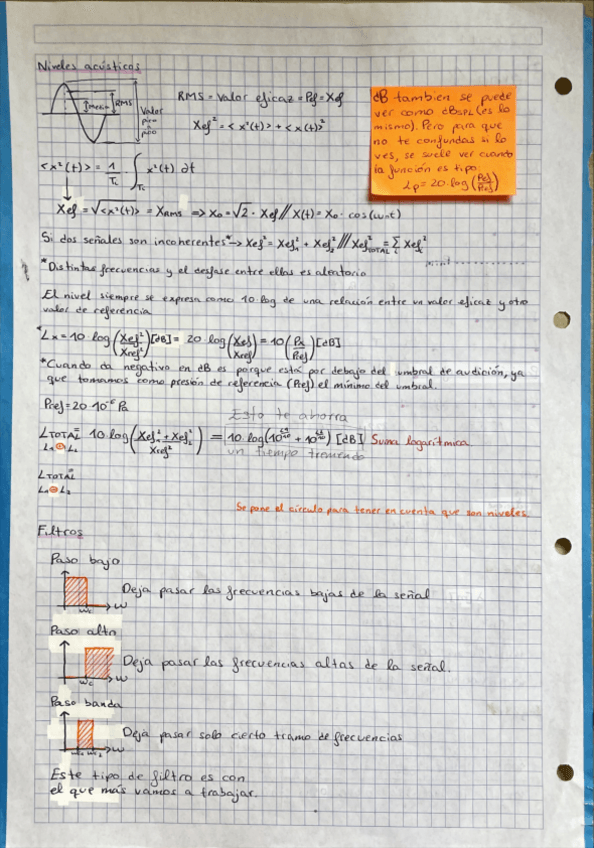 Niveles acústicos
Media
RMS
Valor
pico
a
pico
RMS = Valor eficaz = Pef = Xef
Xef² = <x²(t)> + <x(t)>²
dB tambien se puede
ver como dBSPL (es lo
mismo). Pero para que
no te confundas si lo
ves, se suele ver cuando
la función es tipo:
Lp = 20·log(Pef/Pref)
<x²(t)> = 1/TL ∫TL x²(t) dt
Xef = √<x²(t)> = XRMS => X0 = √2 · Xef // X(t) = X0 · cos(ω·t)
Si dos señales son incoherentes* -> Xef² = Xef1² + Xef2² /// Xef²TOTAL = Σi Xefi²
*Distintas frecuencias y el desfase entre ellas es aleatorio
El nivel siempre se expresa como 10·log de una relación entre un valor eficaz y otro
valor de referencia
*Lx = 10·log(Xef²/Xref²)[dB] = 20·log(Xef/Xref) = 10(Px/Pref)[dB]
*Cuando da negativo en dB es porque está por debajo del umbral de audición, ya
que tomamos como presión de referencia (Pref) el mínimo del umbral.
Pref = 20·10⁻⁶ Pa
Esto te ahorra
LTOTAL = 10·log(Xef1² + Xef2² / Xref²) = 10·log(10^(L1/10) + 10^(L2/10)) [dB] Suma logarítmica
L1 ⊕ L2
un tiempo tremendo
LTOTAL =
L1 ⊖ L2
Se pone el círculo para tener en cuenta que son niveles
Filtros
Paso bajo
Deja pasar las frecuencias bajas de la señal
ωc ω
Paso alto
Deja pasar las frecuencias altas de la señal.
ωc ω
Paso banda
Deja pasar solo cierto tramo de frecuencias
ωc1 ωc2 ω
Este tipo de filtro es con
el que más vamos a trabajar.